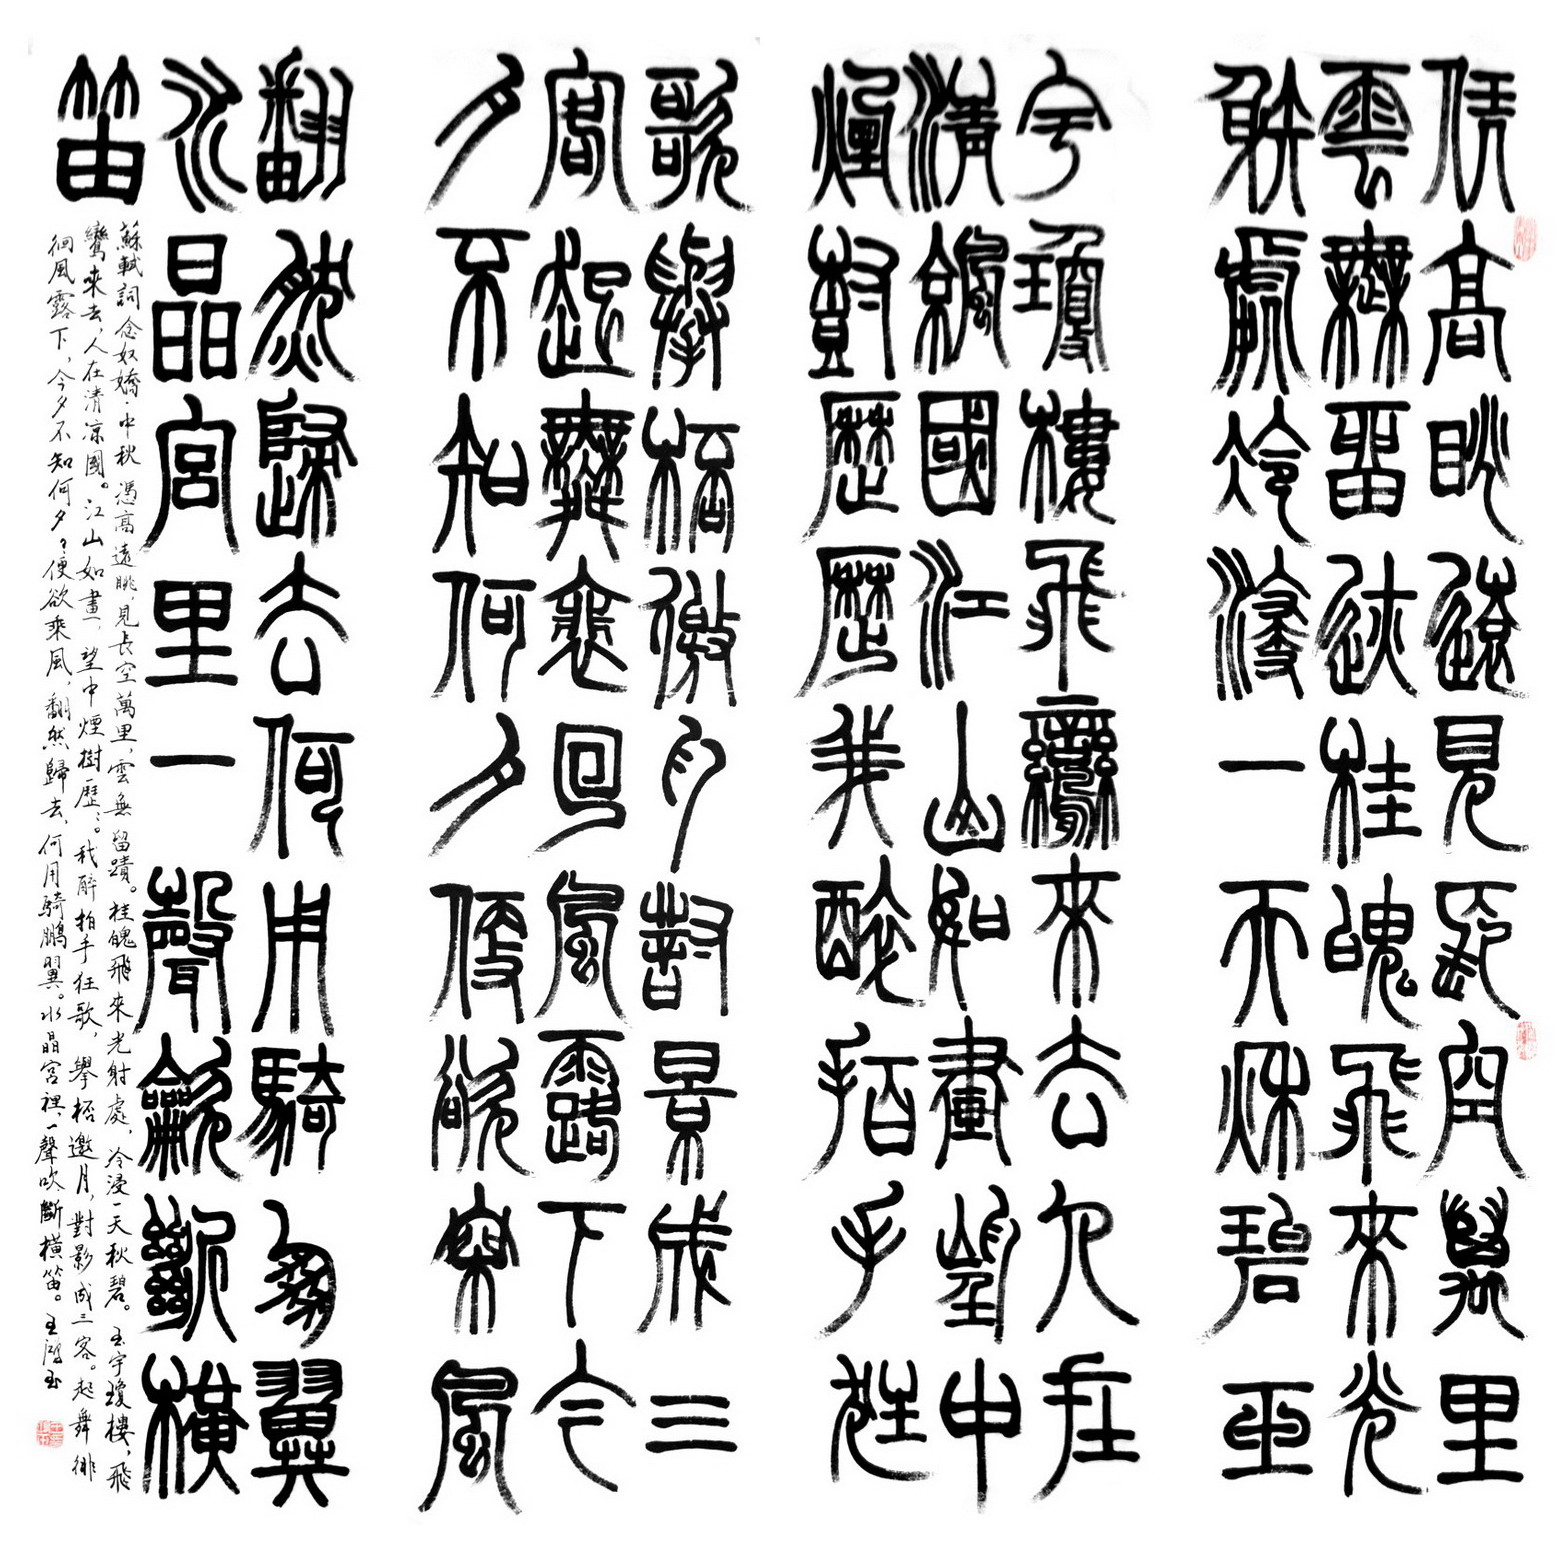 凭高眺遠見長空萬里
雲無留迹桂魄飛來光
射處冷浸一天秋碧玉
宇瓊樓飛鸞來去人在
清涼國江山如畫望中
煙樹歷歷我醉拍手狂
歌舉桮邀月對景成三
客起舞裵回風露下今
夕不知何夕便欲乘風
翻然歸去何用騎鵬翼
水晶宮里一聲龡斷橫
笛
蘇軾詞念奴嬌·中秋 憑高遠眺見長空萬里,雲無留蹟。桂魄飛來光射處,冷浸一天秋碧。玉宇瓊樓,飛
鸞來去,人在清凉國。江山如畫,望中煙樹歷〻。我醉拍手狂歌,舉桮邀月,對影成三客。起舞徘
徊風露下,今夕不知何夕〻便欲乘風,翻然歸去,何用騎鵬翼。水晶宮裡,一聲吹斷橫笛。王鴻玉